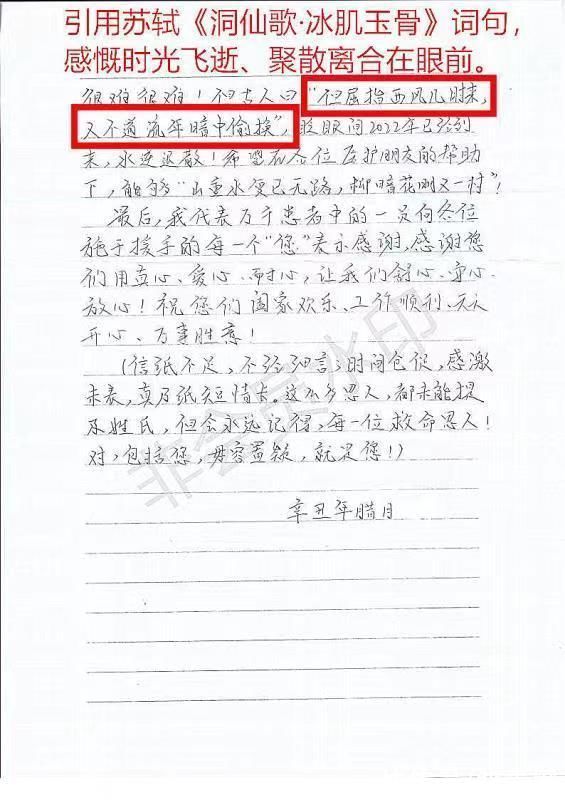 引用苏轼《洞仙歌·冰肌玉骨》词句，
感慨时光飞逝、聚散离合在眼前。
很难很难！但古人曰“但屈指西风几时来，
又不道流年暗中偷换”，眨眼间2022年已经到
来，水逆退散！希望在各位医护朋友的帮助
下，能够“山重水复已无路，柳暗花明又一村”！
最后，我代表万千患者中的一员向各位
施于援手的每一个“您”表示感谢，感谢您
们用真心、爱心、耐心，让我们舒心、安心、
放心！祝您们阖家欢乐、工作顺利、天天
开心、万事胜意！
（信纸不足，不经细言；时间仓促，感激
未表，真乃纸短情长。这么多恩人，都未能提
及姓氏，但会永远记得，每一位救命恩人！
对，包括您，毋容置疑，就是您！）
辛丑年腊月
非会员水印